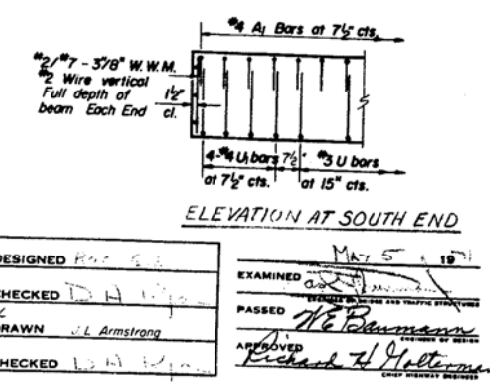 #4 A1 Bars at 7½" cts.
#2/#7 - 3"/8" W.W.M.
#2 Wire vertical
Full depth of
beam Each End
1½"
cl.
4-#4 U1 bars 7½" #3 U bars
at 7½" cts. at 15" cts.
ELEVATION AT SOUTH END
DESIGNED
CHECKED D H
DRAWN J.L. Armstrong
CHECKED D H
May 5, 19
EXAMINED
ENGINEER OF BRIDGE AND TRAFFIC STRUCTURES
PASSED W E Baumann
ENGINEER OF DESIGN
APPROVED
Richard H Golterman
CHIEF HIGHWAY ENGINEER